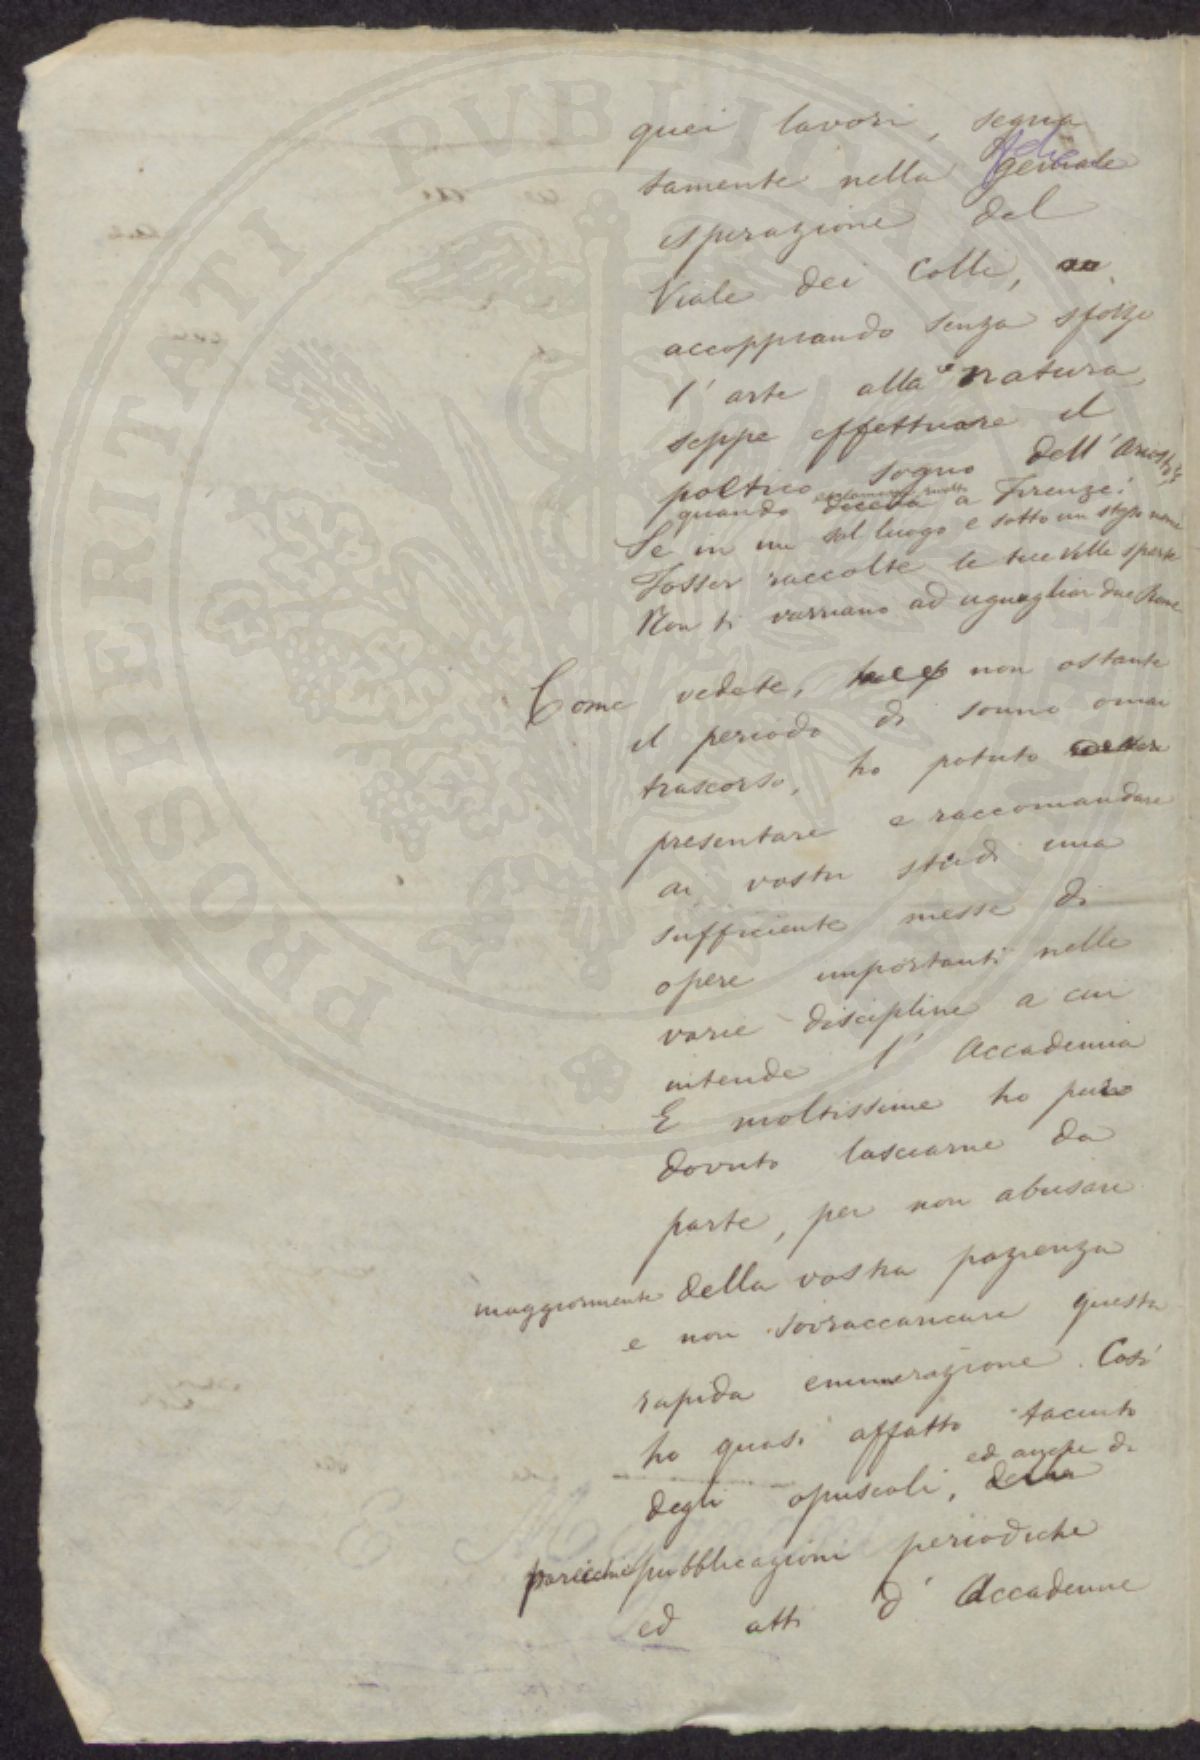 quei lavori, segna
tamente nella geniale
ispirazione del
Viale dei Colli,
accoppiando senza sforzo
l'arte alla natura,
seppe effettuare il
poetico sogno dell'Ariosto,
quando esclamava rivolto a Firenze:
Se in un sol luogo e sotto un stesso nome
Fosser raccolte le tue ville sparte
Non ti varriano ad uguagliar due Rome
Come vedete, non ostante
il periodo di sonno omai
trascorso, ho potuto
presentare e raccomandare
ai vostri studi una
sufficiente messe di
opere importanti nelle
varie discipline a cui
intende l'Accademia
E moltissime ho pure
dovuto lasciarne da
parte, per non abusare
maggiormente della vostra pazienza
e non sovraccaricare questa
rapida enumerazione. Così
ho quasi affatto taciuto
degli opuscoli, ed anche di
parecchie pubblicazioni periodiche
ed atti d'Accademie
PROSPERITATI PVBLICAE